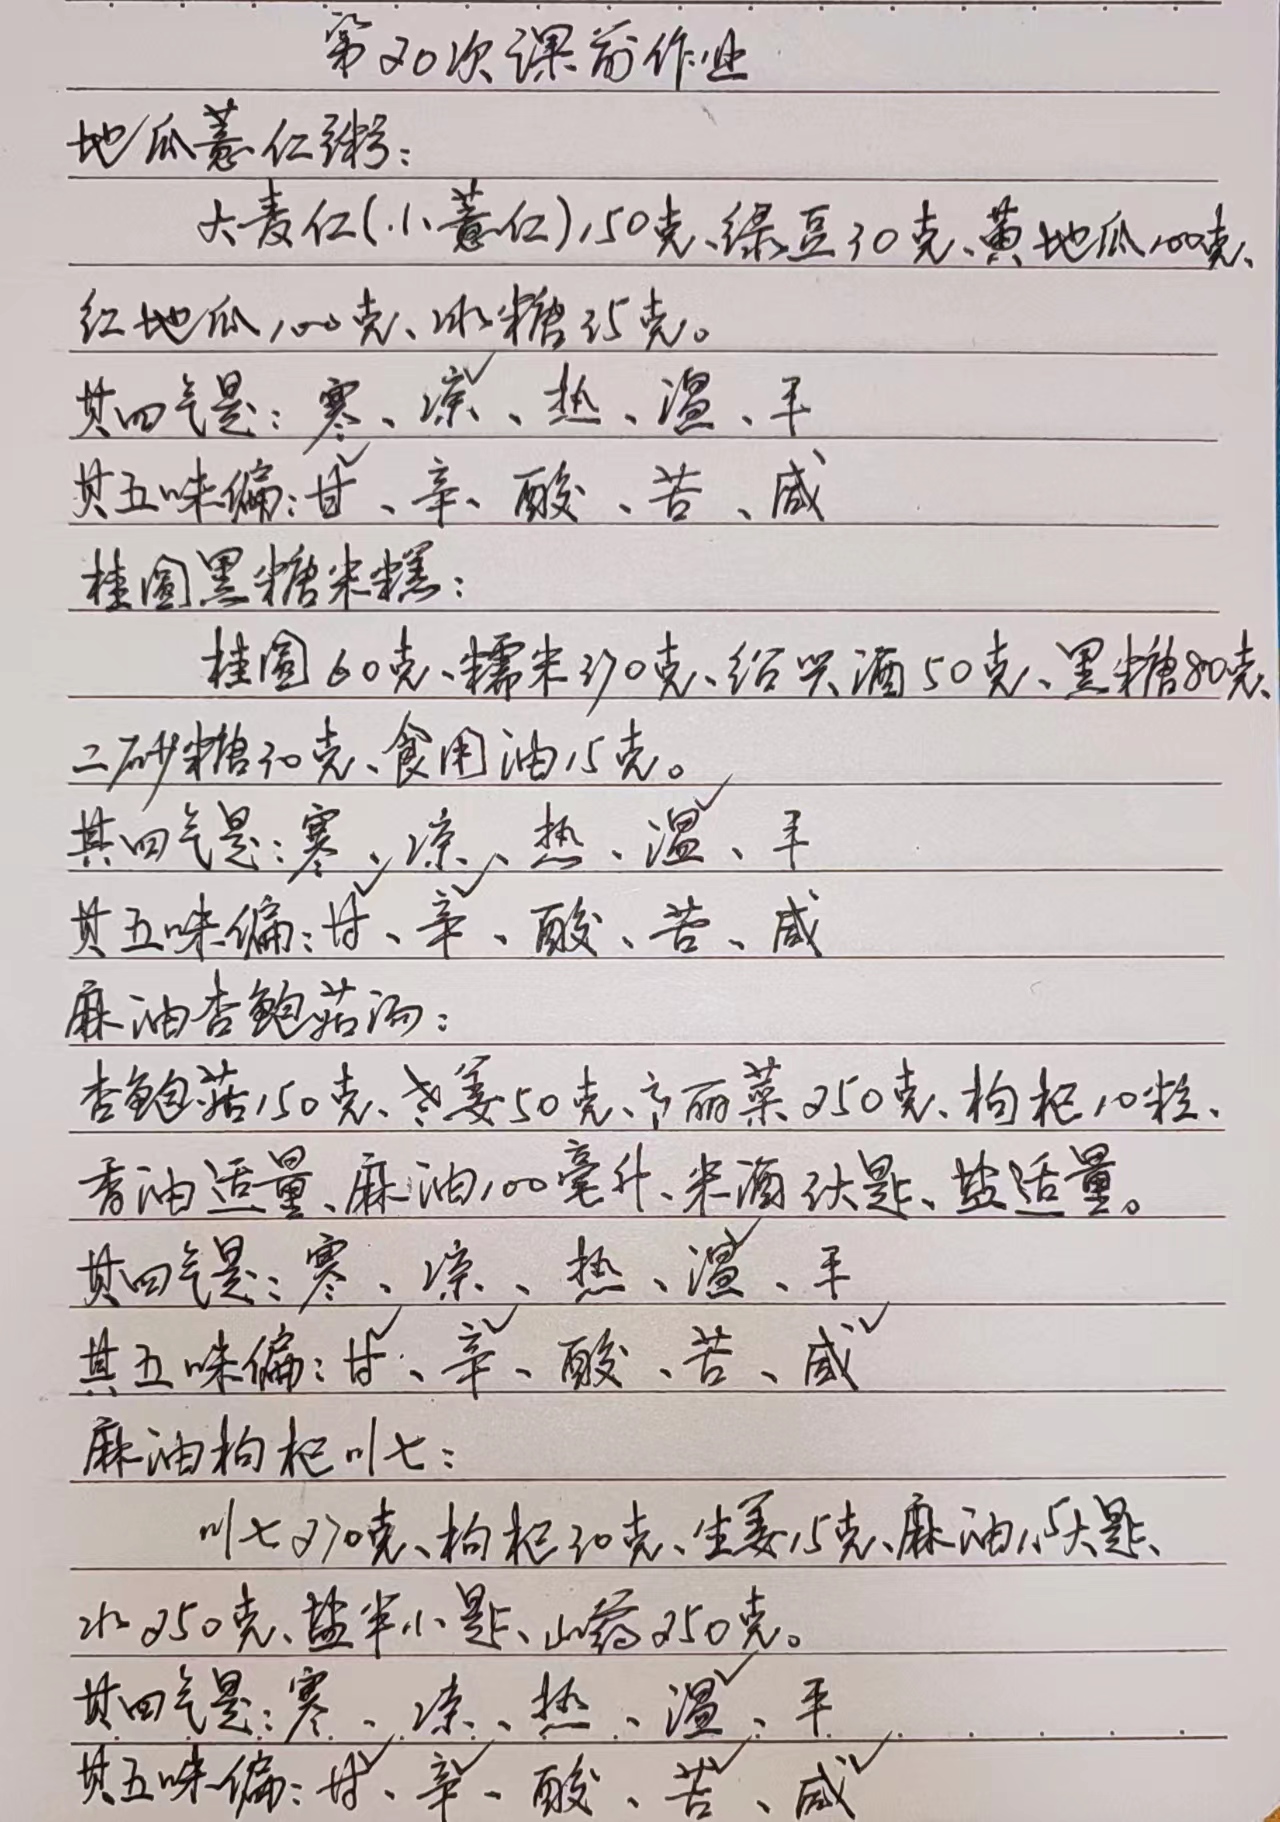 第20次课前作业
地瓜薏仁粥：
大麦仁(小薏仁)150克、绿豆30克、黄地瓜100克、
红地瓜100克、冰糖35克。
其四气是：寒、凉✓、热、温、平
其五味偏：甘✓、辛、酸、苦、咸
桂圆黑糖米糕：
桂圆60克、糯米370克、绍兴酒50克、黑糖80克、
二砂糖30克、食用油15克。
其四气是：寒、凉、热、温✓、平
其五味偏：甘✓、辛✓、酸、苦、咸
麻油杏鲍菇汤：
杏鲍菇150克、老姜50克、高丽菜250克、枸杞10粒、
香油适量、麻油100毫升、米酒3大匙、盐适量。
其四气是：寒、凉、热、温✓、平
其五味偏：甘✓、辛✓、酸、苦、咸✓
麻油枸杞川七：
川七270克、枸杞30克、生姜15克、麻油1.5大匙、
水250克、盐半小匙、山药250克。
其四气是：寒、凉、热、温✓、平
其五味偏：甘✓、辛✓、酸、苦✓、咸✓